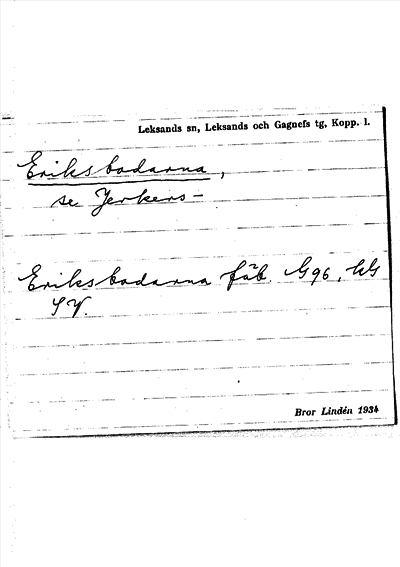 Leksands sn, Leksands och Gagnefs tg, Kopp. l.
Eriksbodarna,
se Jerkers-
Eriksbodarna fäb. G96, KG
SV.
Bror Lindén 1934